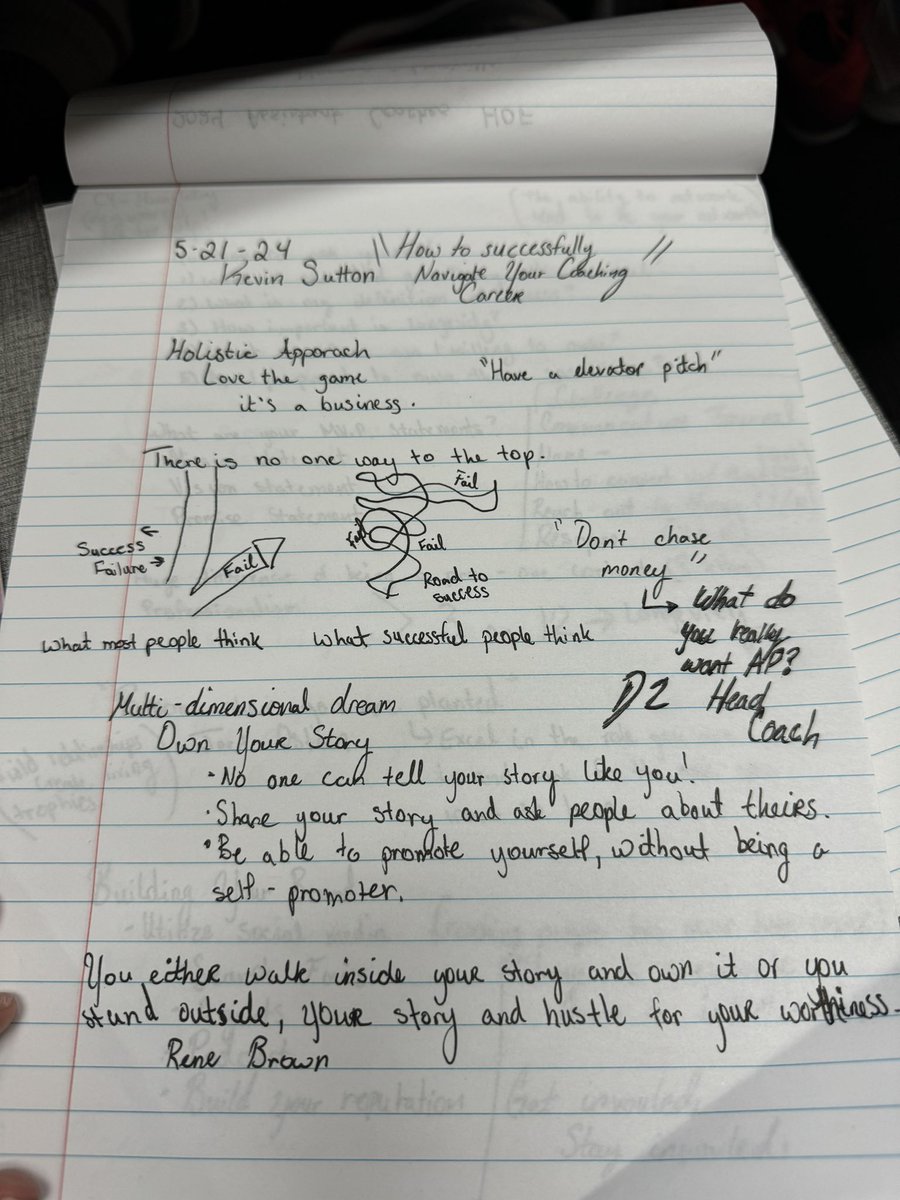 5-21-24 "How to successfully "
Kevin Sutton Navigate Your Coaching
Career
Holistic Apporach
Love the game "Have a elevator pitch"
it's a business.
There is no one way to the top.
Fail
Success
Failure
Fail
Fail
Fail
Road to
success
"Don't chase
money"
What do
you really
want AP?
D2 Head
Coach
what most people think what successful people think
Multi-dimensional dream
Own Your Story
• No one can tell your story like you!
• Share your story and ask people about theirs.
• Be able to promote yourself, without being a
self-promoter.
You either walk inside your story and own it or you
stand outside, your story and hustle for your worthiness.
Rene Brown
2024 Assistant Coaches HOF
Build your reputation